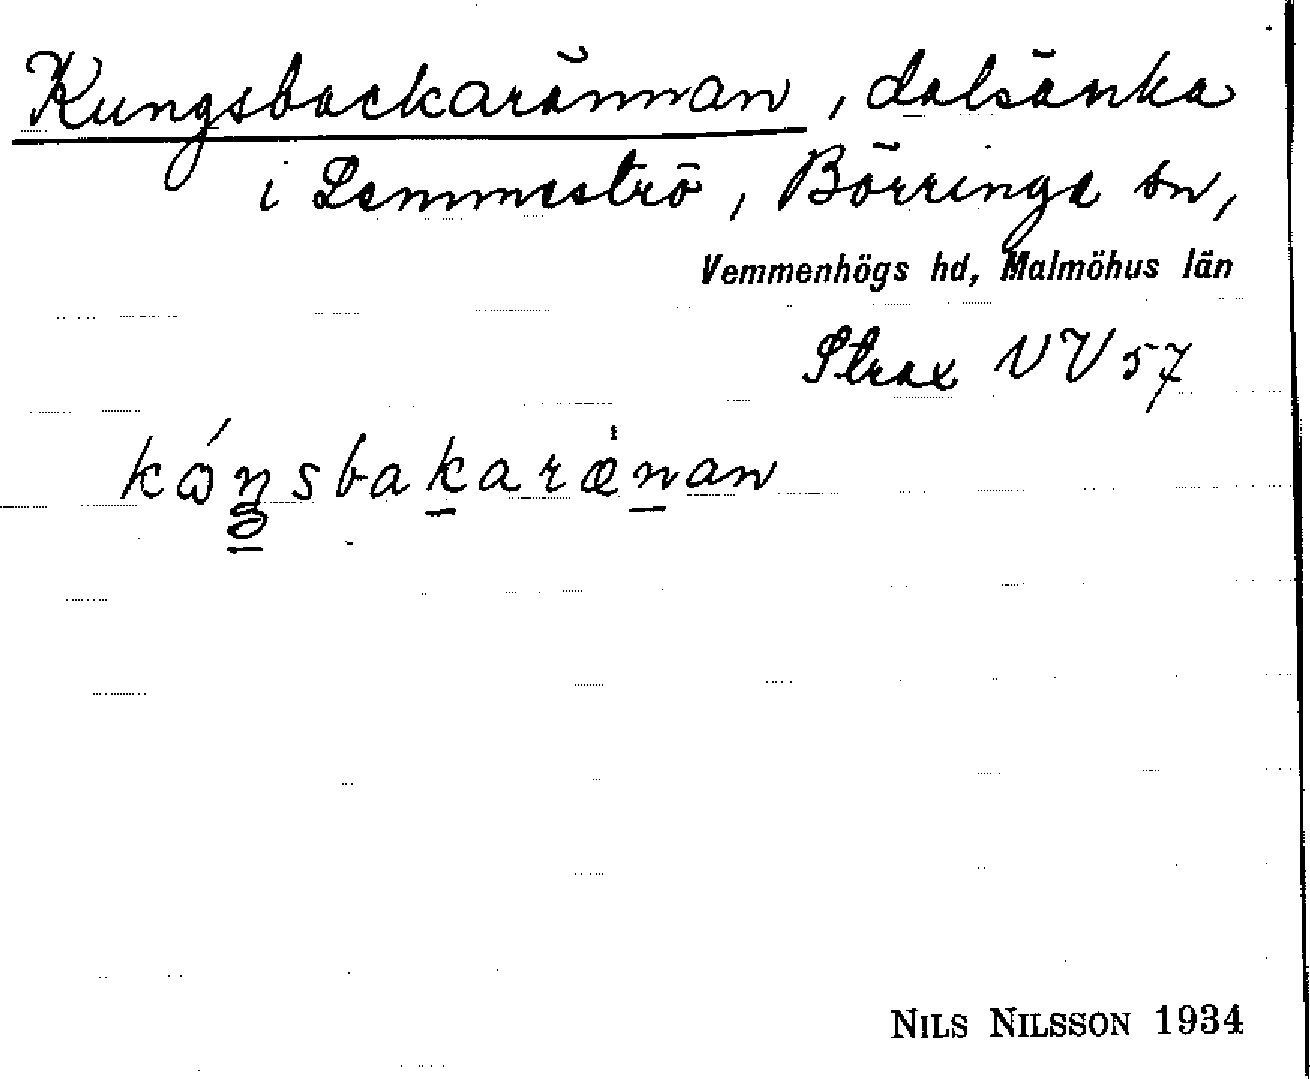 Kungsbackarännan, dalsänka
i Lemmeströ, Börringe sn,
Vemmenhögs hd, Malmöhus län
Strax VV 57
kó̱ŋsbaḵaræ̀ṉan
NILS NILSSON 1934